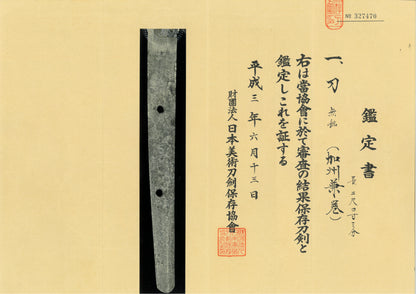 № 327470
鑑定書
一、刀 無銘(加州兼巻)
長 二尺
右は當協會に於て審査の結果保存刀剣と
鑑定しこれを証する
平成三年六月十三日
財團法人日本美術刀劍保存協會